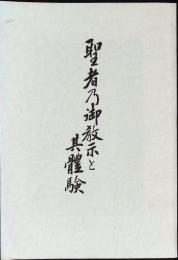 聖者乃御教示と
其體驗